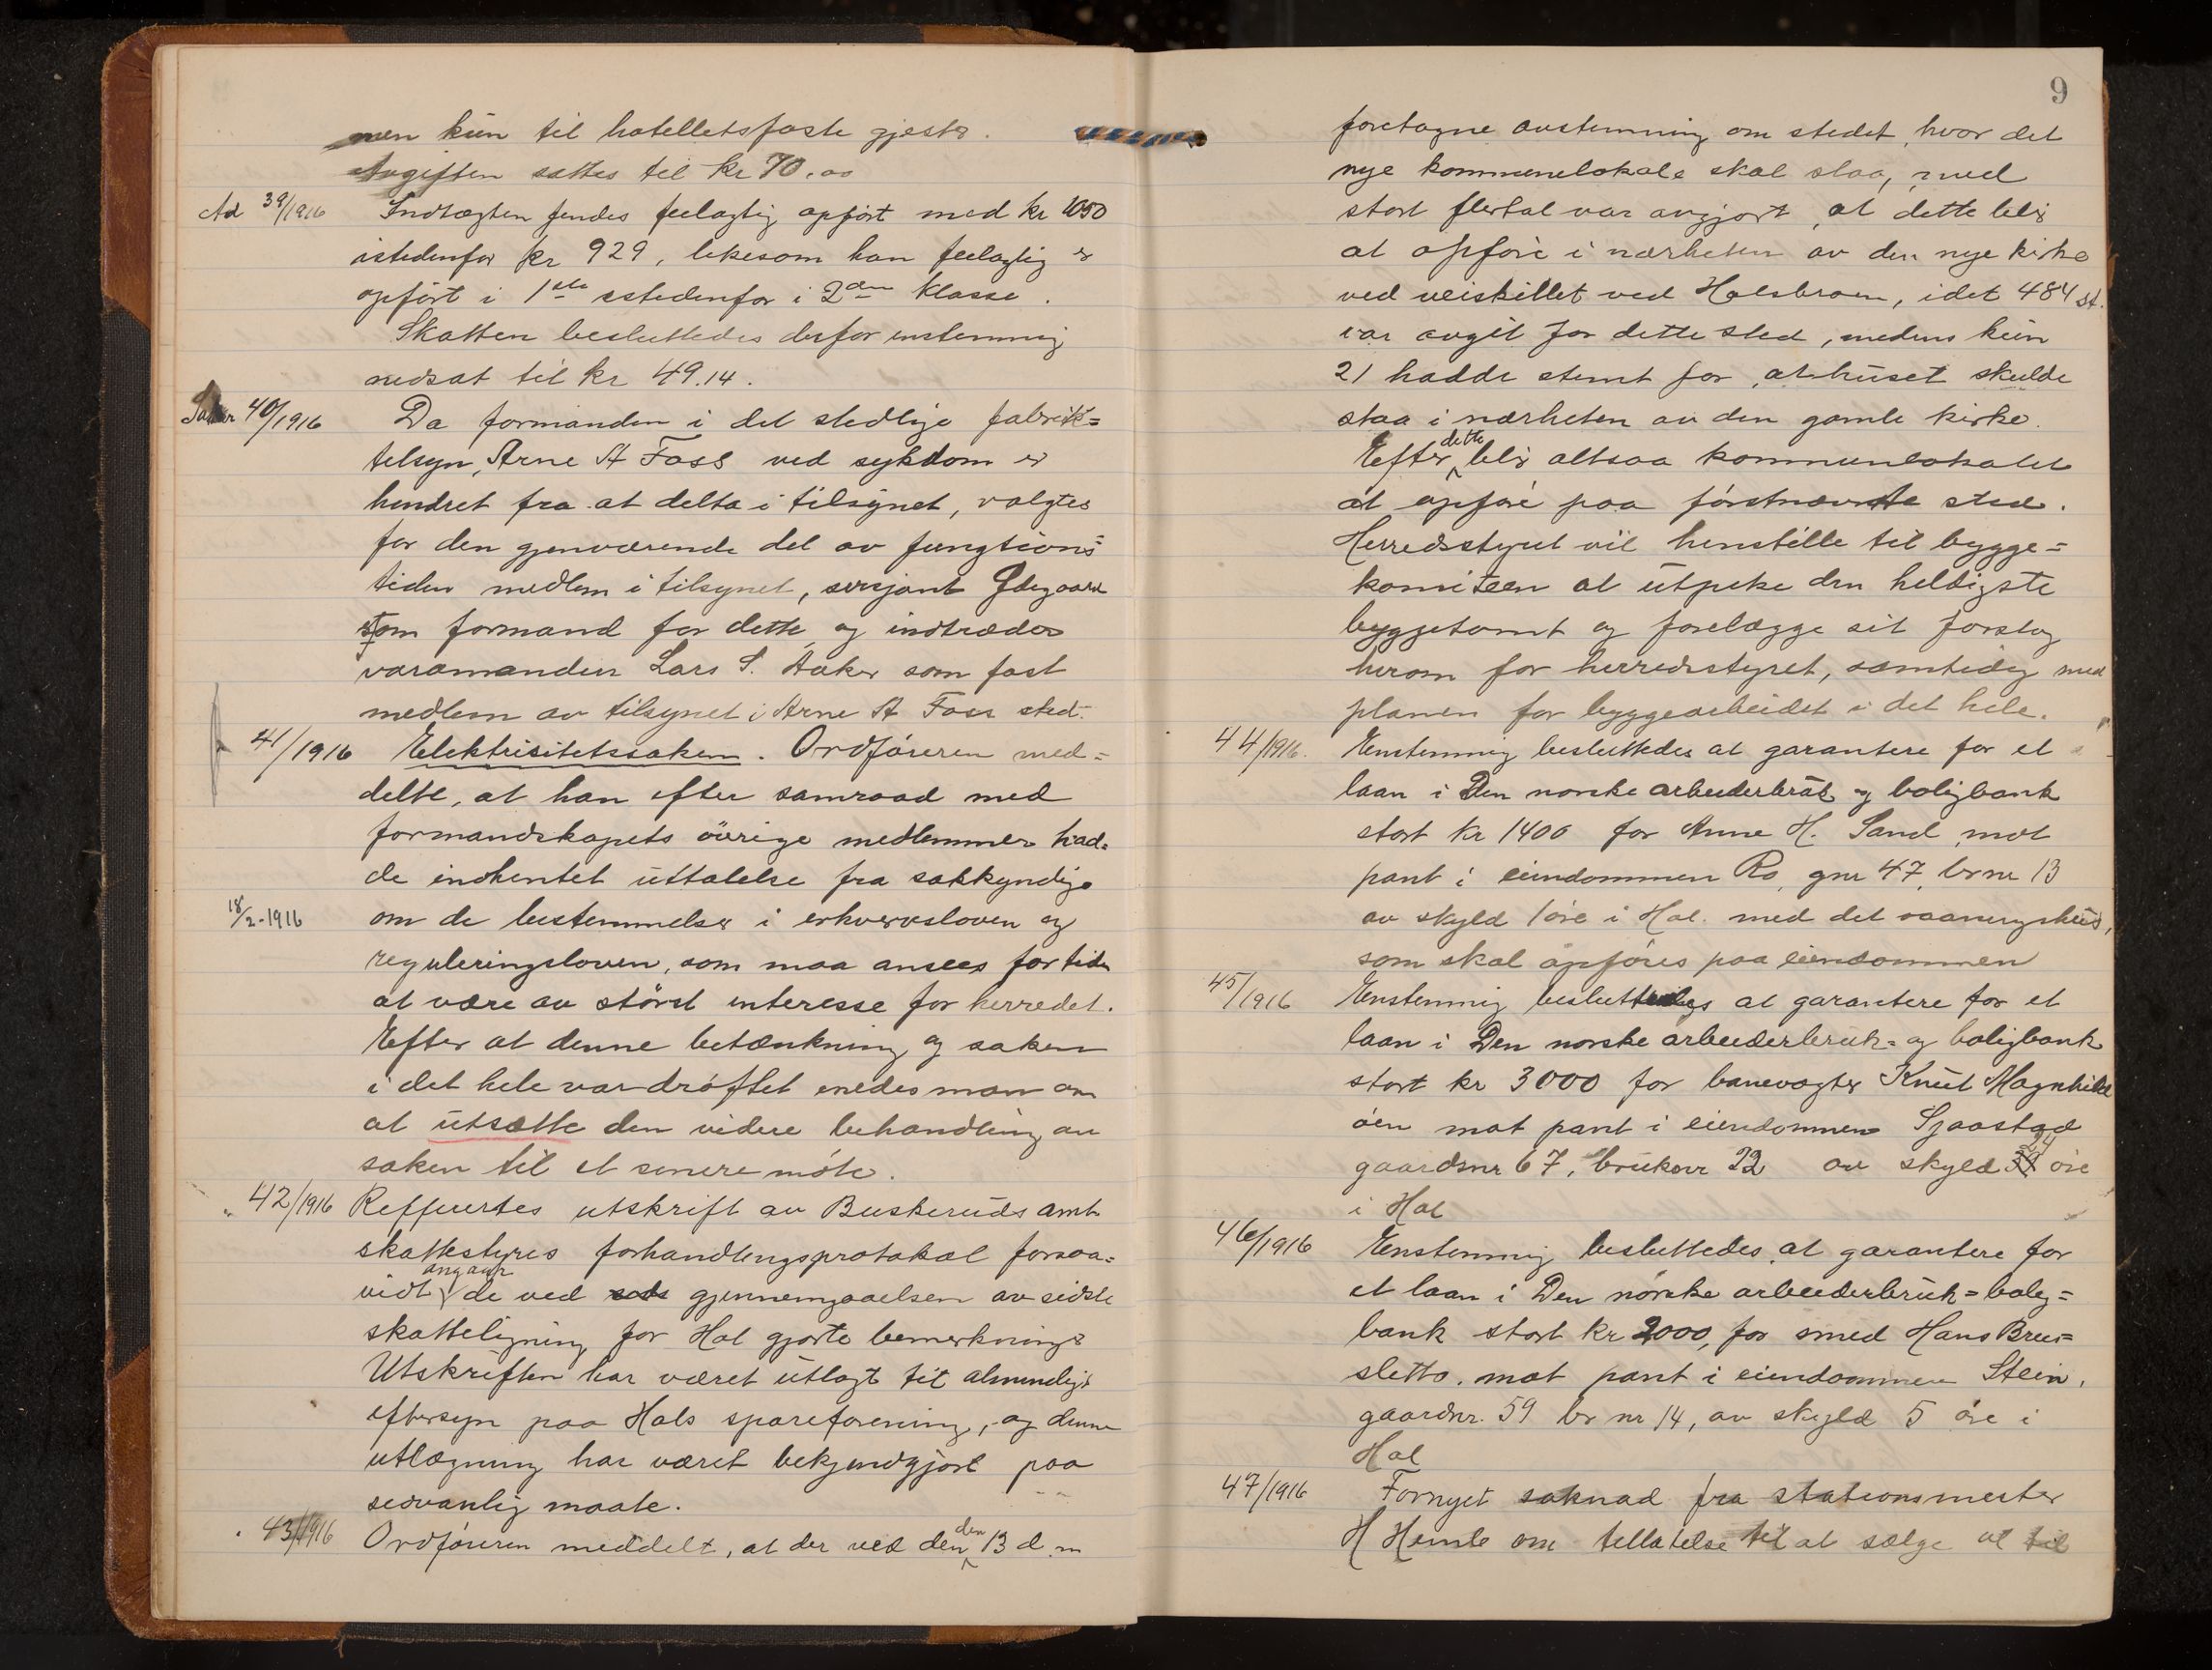 men kun til hotelletsfaste gjester.
Avgiften sattes til kr 70.00
Ad 39/1916 Indtægten fendes feelagtig opført med kr 1050
istedenfor kr 929, likesom han feelagtig er
opført i 1ste istedenfor i 2den klasse.
Skatten besluttedes derfor enstemmig
nedsat til kr 49.14.
Saker 40/1916 Da formanden i det stedlige fabrik=
telsyn, Arne A Foss ved sykdom er
hendret fra at delta i tilsynet, valgtes
for den gjenværende del av fungtions=
tiden medlem i tilsynet, sersjant Ødegaard
som formand for dette og indtræder
varamanden Lars S. Aaker som fast
medlem av tilsynet i Arne A Foss sted.
41/1916 Elektrisitetssaken. Ordføreren med=
delte, at han efter samraad med
formandskapets øvrige medlemmer had=
de indhentet uttalelse fra sakkyndige
18/2-1916 om de bestemmelser i erhvervsloven og
reguleringsloven, som maa ansees for tiden
at være av størst interesse for herredet.
Efter at denne betænkning og saken
i det hele var drøftet enedes man om
at utsætte den videre behandling av
saken til et senere møte.
" 42/1916 Refferertes utskrift av Buskeruds amts
skattestyres forhandlingsprotokol forsaa=
angaar
vidt de ved gjennemgaaelsen av sidste
skatteligning for Hol gjorte bemerkninger
Utskriften har været utlagt til almindelig
eftersyn paa Hols spareforening, og denne
utlægning har været bekjendtgjort paa
sedvanlig maate.
" 43/1916 Ordføreren meddelt, at der ved den den 13 d.m
9
foretagne avstemning om stedet, hvor det
nye kommunelokale skal staa, med
stort flertal var avgjort, at dette blir
at opføre i nærheten av den nye kirke
ved veiskillet ved Holsbroen, idet 484 st.
var avgit for dette sted, medens kun
21 hadde stemt for, at huset skulde
staa i nærheten av den gamle kirke.
Efter dette blir altsaa kommunelokalet
at opføre paa førstnævnte sted.
Herredsstyret vil henstille til bygge=
komiteen at utpeke den heldigste
byggetomt og forelægge sit forslag
herom for herredsstyret, samtidig med
planen for byggearbeidet i det hele.
44/1916. Enstemmig besluttedes at garantere for et
laan i Den norske arbeiderbruk og boligbank
stort kr 1400 for Anne H. Sand mot
pant i eiendommen Ro, gnr 47, brnr 13
av skyld 1 øre i Hol. med det vaaningshus,
som skal opføres paa eiendommen
45/1916 Enstemmig besluttedes at garantere for et
laan i Den norske arbeiderbruk= og boligbank
stort kr 3000 for banevogter Knut Magnhild
øen mot pant i eiendommen Sjaastad
gaardsnr 67, bruksnr 22 av skyld 24 øre
i Hol
46/1916 Enstemmig besluttedes at garantere for
et laan i Den norske arbeiderbruk= bolig=
bank stort kr 2000, for smed Hans Breie=
sletto. mot pant i eiendommen Stein,
gaardnr. 59 br nr 14, av skyld 5 øre i
Hol
47/1916 Fornyet søknad fra stationsmester
H Hemle om tellatelse til at sælge øl til